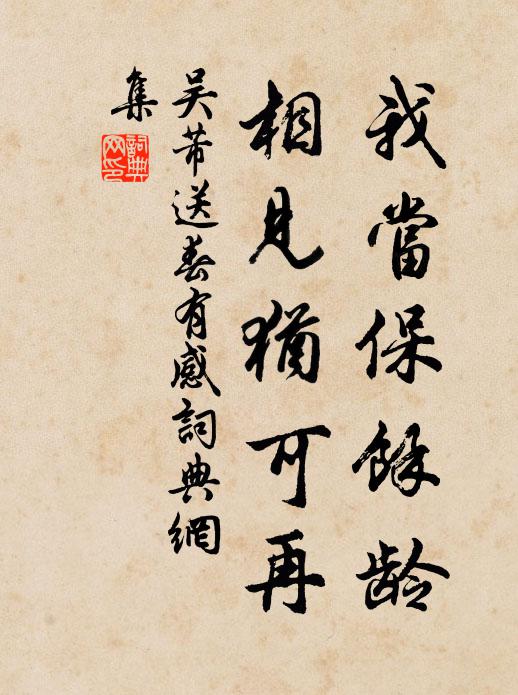 我當保餘龄
相見猶可再
吴芾送春有感詞典網
集
詞典网印